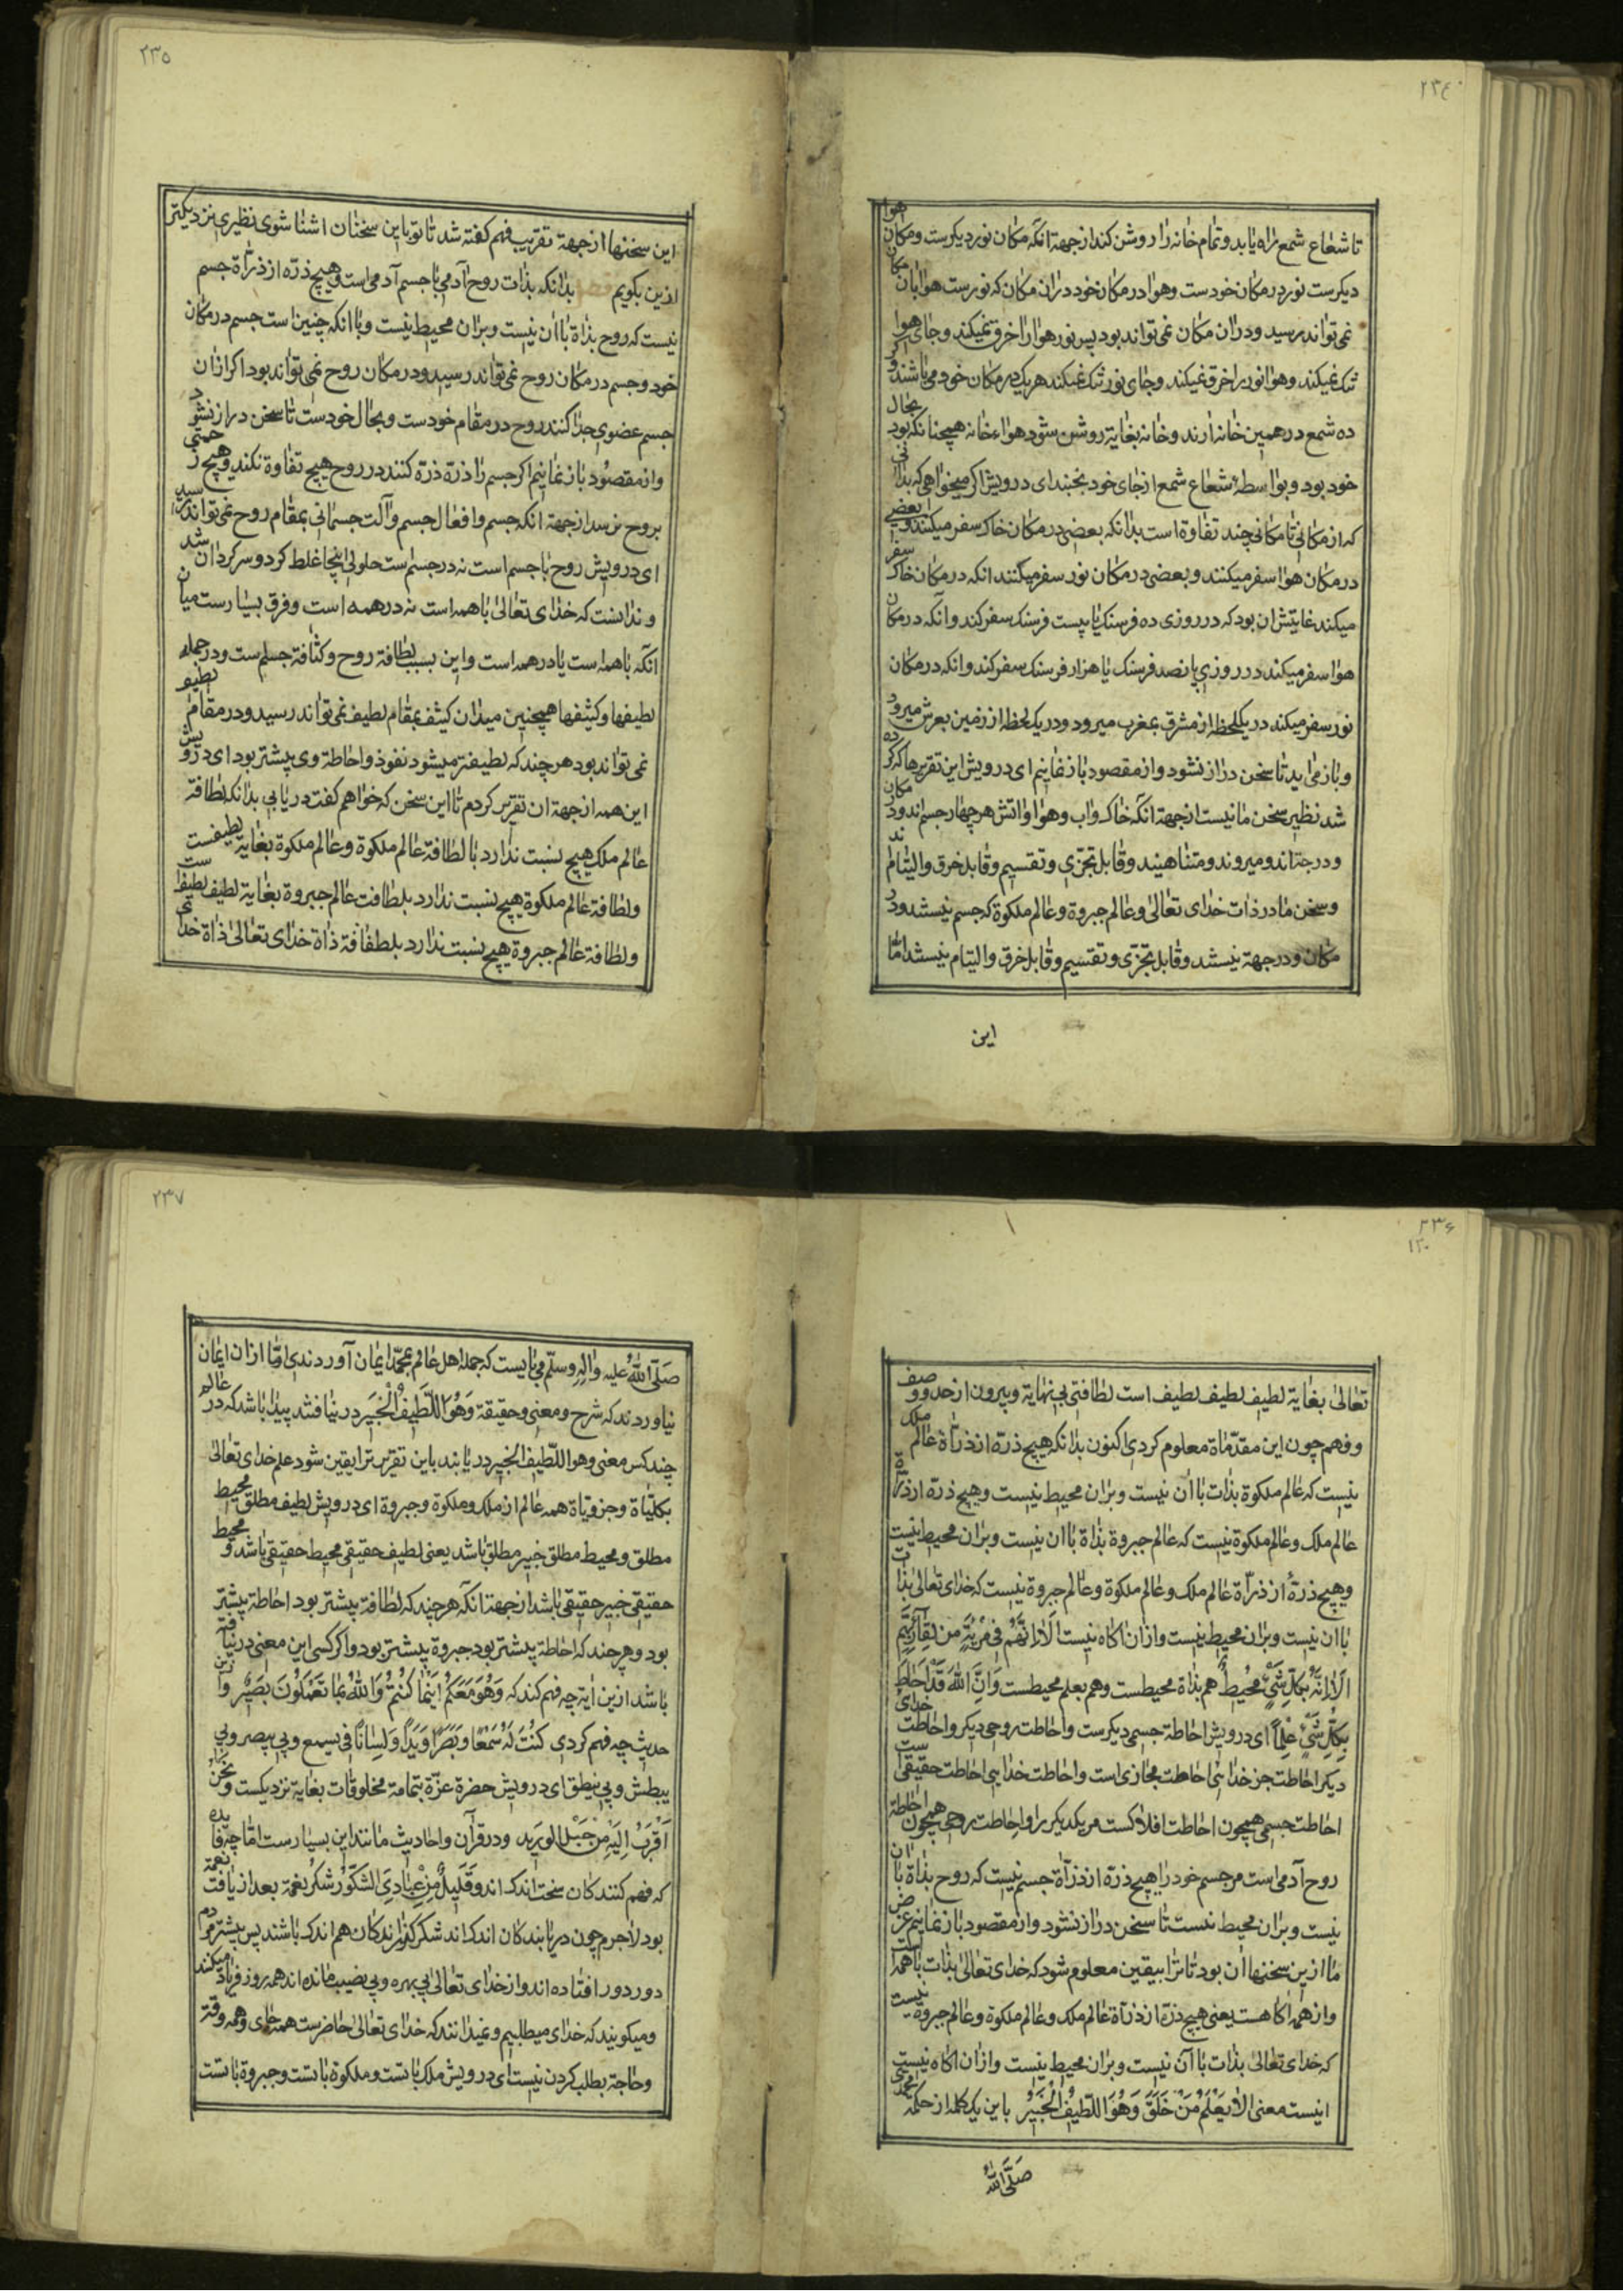 ۲۳٤
تا شعاع شمع راه یابد و تمام خانه را روشن کند از جهة انکه مکان نور دیکرست و مکان هوا
دیکرست نور در مکان خودست و هوا در مکان خود در ان مکان که نورست هوا بان مکان
نمی تواند رسید و در ان مکان نمی تواند بود پس نور هوا را خرق نمیکند و جای هوا
تنک نمیکند و هوا نور را خرق نمیکند و جای نور تنک نمیکند هر یک در مکان خود می باشند و اکر
ده شمع در همین خانه ارند و خانه بغایة روشن شود هواء خانه همچنانکه بود بحال
خود بود و بواسطهٔ شعاع شمع از جای خود نجنبد ای درویش اکر میخواهی که بدانی
که از مکانی تا مکانی چند تفاوة است بدانکه بعضی در مکان خاک سفر میکنند و بعضی
در مکان هوا سفر میکنند و بعضی در مکان نور سفر میکنند انکه در مکان خاک سفر
میکند غایتش ان بود که در روزی ده فرسنک یا بیست فرسنک سفر کند و آنکه در مکان
هوا سفر میکند در روزی پانصد فرسنک یا هزار فرسنک سفر کند و انکه در مکان
نور سفر میکند در یک لحظه از مشرق بمغرب میرود و در یک لحظه از زمین بعرش میرود
و باز می اید تا سخن دراز نشود و از مقصود باز نمانیم ای درویش این تقریرها که کرده
شد نظیر سخن ما نیست از جهة انکه خاک و اب و هوا و اتش هر چهار جسم اند و در مکان
و در جهة اند و میروند و متناهیند و قابل تجزی و تقسیم و قابل خرق و التیام اند
و سخن ما در ذات خدای تعالی و عالم جبروة و عالم ملکوة که جسم نیستند و در
مکان و در جهة نیستند و قابل تجزی و تقسیم و قابل خرق و التیام نیستند امّا
این
۲۳٥
این سخنها از جهة تقریب فهم کفته شد تا تو باین سخنان اشنا شوی نظیری نزدیکتر
ازین بکویم بدانکه بذات روح آدمی با جسم آدمی است و هیچ ذرّه از ذرّاة جسم
نیست که روح بذاة با ان نیست و بران محیط نیست و با انکه چنین است جسم در مکان
خود و جسم در مکان روح نمی تواند رسید و در مکان روح نمی تواند بود اکر از ان
جسم عضوی جدا کنند روح در مقام خودست و بحال خودست تا سخن دراز نشود
و از مقصود باز نمانیم اکر جسم را ذرّه ذرّه کنند در روح هیچ تفاوة نکند و هیچ زحمتی
بروح نرسد از جهة انکه جسم و افعال جسم و آلت جسمانی بمقام روح نمی تواند رسید
ای درویش روح با جسم است نه در جسم ست حلولی اینجا غلط کرد و سرکردان شد
و ندانست که خدای تعالی با همه است نه در همه است و فرق بسیارست میان
انکه با همه است یا در همه است و این بسبب لطافة روح و کثافة جسم ست و در جمله
لطیفها و کثیفها همچنین میدان کثیف بمقام لطیف نمی تواند رسید و در مقام لطیف
نمی تواند بود هر چند که لطیفتر میشود نفوذ و احاطة وی بیشتر بود ای درویش
این همه از جهة ان تقریر کردم تا این سخن که خواهم کفت دریابی بدانکه لطافة
عالم ملک هیچ نسبت ندارد با لطافة عالم ملکوة و عالم ملکوة بغایة لطیفست
و لطافة عالم ملکوة هیچ نسبت ندارد بلطافت عالم جبروة بغایة لطیف لطیف است
و لطافة عالم جبروة هیچ نسبت ندارد بلطافة ذاة خدای تعالی ذاة خدای
۲۳۶
۱۲۰
تعالی بغایة لطیف لطیف لطیف است لطافتی بی نهایة و بیرون از حد و وصف
و فهم چون این مقدّماة معلوم کردی اکنون بدانکه هیچ ذرّه از ذرّاة عالم ملک
نیست که عالم ملکوة بذات با ان نیست و بران محیط نیست و هیچ ذرّه از ذرّاة
عالم ملک و عالم ملکوة نیست که عالم جبروة بذاة با ان نیست و بران محیط نیست
و هیچ ذرّهٔ از ذرّاة عالم ملک و عالم ملکوة و عالم جبروة نیست که خدای تعالی بذات
با ان نیست و بران محیط نیست و از ان اکاه نیست اَلَا اِنَّهُمْ فِی مِرْیَةٍ مِن لِقَآءِ رَبِّهِمْ
اَلَا اِنَّهُ بِکُلِّ شَیْءٍ مُحِیطٌ هم بذاة محیطست و هم بعلم محیطست وَاَنَّ اللهَ قَدْ اَحَاطَ
بِکُلِّ شَیْءٍ عِلْمًا ای درویش احاطة جسمی دیکرست و احاطت روحی دیکر و احاطت خدای
دیکر احاطت جز خدائی احاطت مجازی است و احاطت خدایی احاطت حقیقی است
احاطت جسمی همچون احاطت افلاکست مر یکدیکر را و احاطت روحی همچون احاطة
روح آدمی است مر جسم خود را هیچ ذرّه از ذرّاة جسم نیست که روح بذاة با ان
نیست و بران محیط نیست تا سخن دراز نشود و از مقصود باز نمانیم غرض
ما ازین سخنها آن بود تا ترا بیقین معلوم شود که خدای تعالی بذات با همه است
و از همه اکاهست یعنی هیچ ذرّه از ذرّاة عالم ملک و عالم ملکوة و عالم جبروة نیست
که خدای تعالی بذات با آن نیست و بران محیط نیست و از ان اکاه نیست
اینست معنی اَلَا یَعْلَمُ مَنْ خَلَقَ وَهُوَ اللَّطِیفُ الْخَبِیرُ باین یک کلمه از حکمة محمّد
صَلَّی اللهُ
۲۳۷
صَلَّی اللهُ علیه وآلهِ وسلّم می بایست که جمله اهل عالم بمحمّد ایمان آوردندی امّا از ان ایمان
نیاوردند که شرح و معنی و حقیقة وَهُوَ اللَّطِیفُ الْخَبِیرُ در نیافتند پیدا باشد که در عالم
چند کس معنی وهو اللّطیف الخبیر در یابند باین تقریر ترا یقین شود علم خدای تعالی
بکلّیاة و جزویاة همه عالم از ملک و ملکوة و جبروة ای درویش لطیف مطلق محیط
مطلق و محیط مطلق خبیر مطلق باشد یعنی لطیف حقیقی محیط حقیقی باشد و محیط
حقیقی خبیر حقیقی باشد از جهة انکه هر چند که لطافة بیشتر بود احاطة بیشتر
بود و هر چند که احاطة بیشتر بود جبروة بیشتر بود و اکر کسی این معنی در نیافته
باشد ازین ایة چه فهم کند که وَهُوَ مَعَکُمْ اَیْنَمَا کُنْتُمْ وَاللهُ بِمَا تَعْمَلُونَ بَصِیرٌ و ازین
حدیث چه فهم کردی کُنْتُ لَهُ سَمْعًا وَبَصَرًا وَیَدًا وَلِسَانًا فبی یسمع وبی یبصر وبی
یبطش وبی ینطق ای درویش حضرة عزّة بتمامة مخلوقات بغایة نزدیکست وَنَحْنُ
اَقْرَبُ اِلَیْهِ مِنْ حَبْلِ الوَرِید و در قرآن و احادیث مانند این بسیارست امّا چه فایده
که فهم کنندکان سخت اندک اند وَقَلِیلٌ مِنْ عِبَادِیَ الشَّکُورُ شکر نعمة بعد از یافت نعمة
بود لاجرم چون دریابندکان اندک اند شکر کذارندکان هم اندک باشند پس بیشتر مردم
دور دور افتاده اند و از خدای تعالی بی بهره و بی نصیب مانده اند همه روز فریاد میکنند
و میکویند که خدای میطلبیم و نمیدانند که خدای تعالی حاضرست همه جای و همه وقتر
و حاجة بطلب کردن نیست ای درویش ملک با تست و ملکوة با تست و جبروة با تست